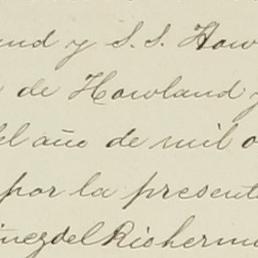 and y S. S. How
de Howland y
del año de mil o
por la present
inez del Rio herm